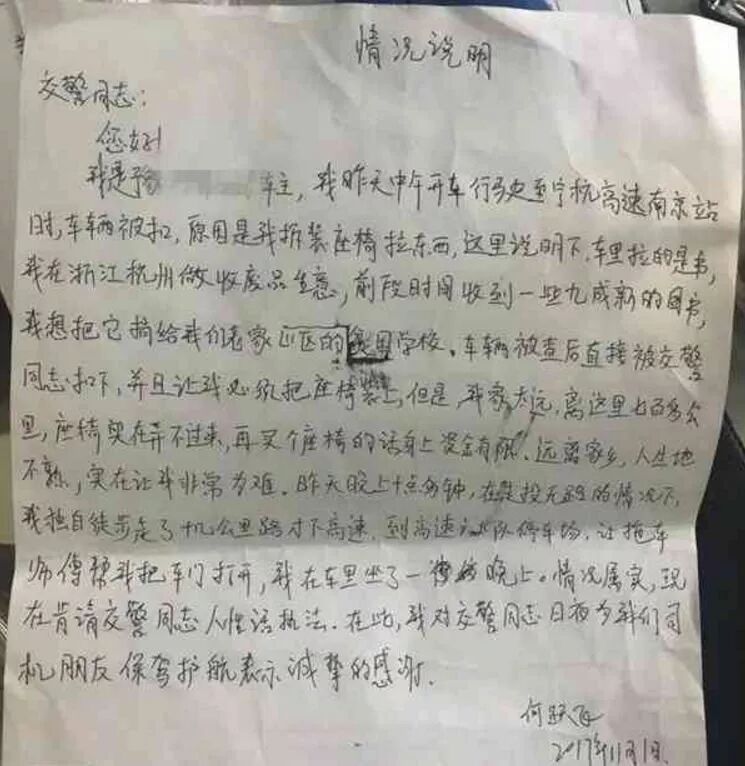 情况说明
交警同志:
您好!
我是豫 车主,我昨天中午开车行驶至宁杭高速南京站
时,车辆被扣,原因是我拆装座椅拉东西,这里说明下,车里拉的是书,
我在浙江杭州做收废品生意,前段时间收到一些九成新的图书,
我想把它捐给我们老家山区的 学校。车辆被查后直接被交警
同志扣下,并且让我必须把座椅装上,但是,我家太远,离这里七百多公
里,座椅实在弄不过来,再买个座椅的话身上资金有限。远离家乡,人生地
不熟,实在让我非常为难。昨天晚上十点 分钟,在走投无路的情况下,
我独自徒步走了十几公里路才下高速,到高速 队停车场,让拖车
师傅帮我把车门打开,我在车里坐了一 晚上。情况属实,现
在肯请交警同志人性话执法。在此,我对交警同志日夜为我们司
机朋友保驾护航表示诚挚的感谢.
何跃飞
2017年11月1日.